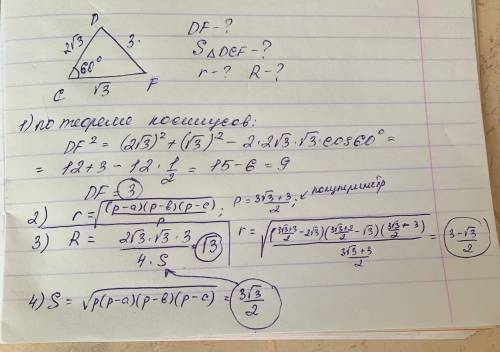 D
2√3
3.
60°
C
√3
F
DF - ?
S△DCF - ?
r - ? R - ?
1) по теореме косинусов:
DF² = (2√3)² + (√3)² - 2·2√3·√3·cos60° =
= 12+3 - 12·1/2 = 15-6 = 9
DF = 3
2) r = √((p-a)(p-b)(p-c)/p); p = (3√3+3)/2; ← полупериметр
3) R = (2√3·√3·3)/(4·S) = √3
r = √(((3√3+3)/2 - 2√3)((3√3+3)/2 - √3)((3√3+3)/2 - 3)/((3√3+3)/2)) = (3-√3)/2
4) S = √(p(p-a)(p-b)(p-c)) = 3√3/2